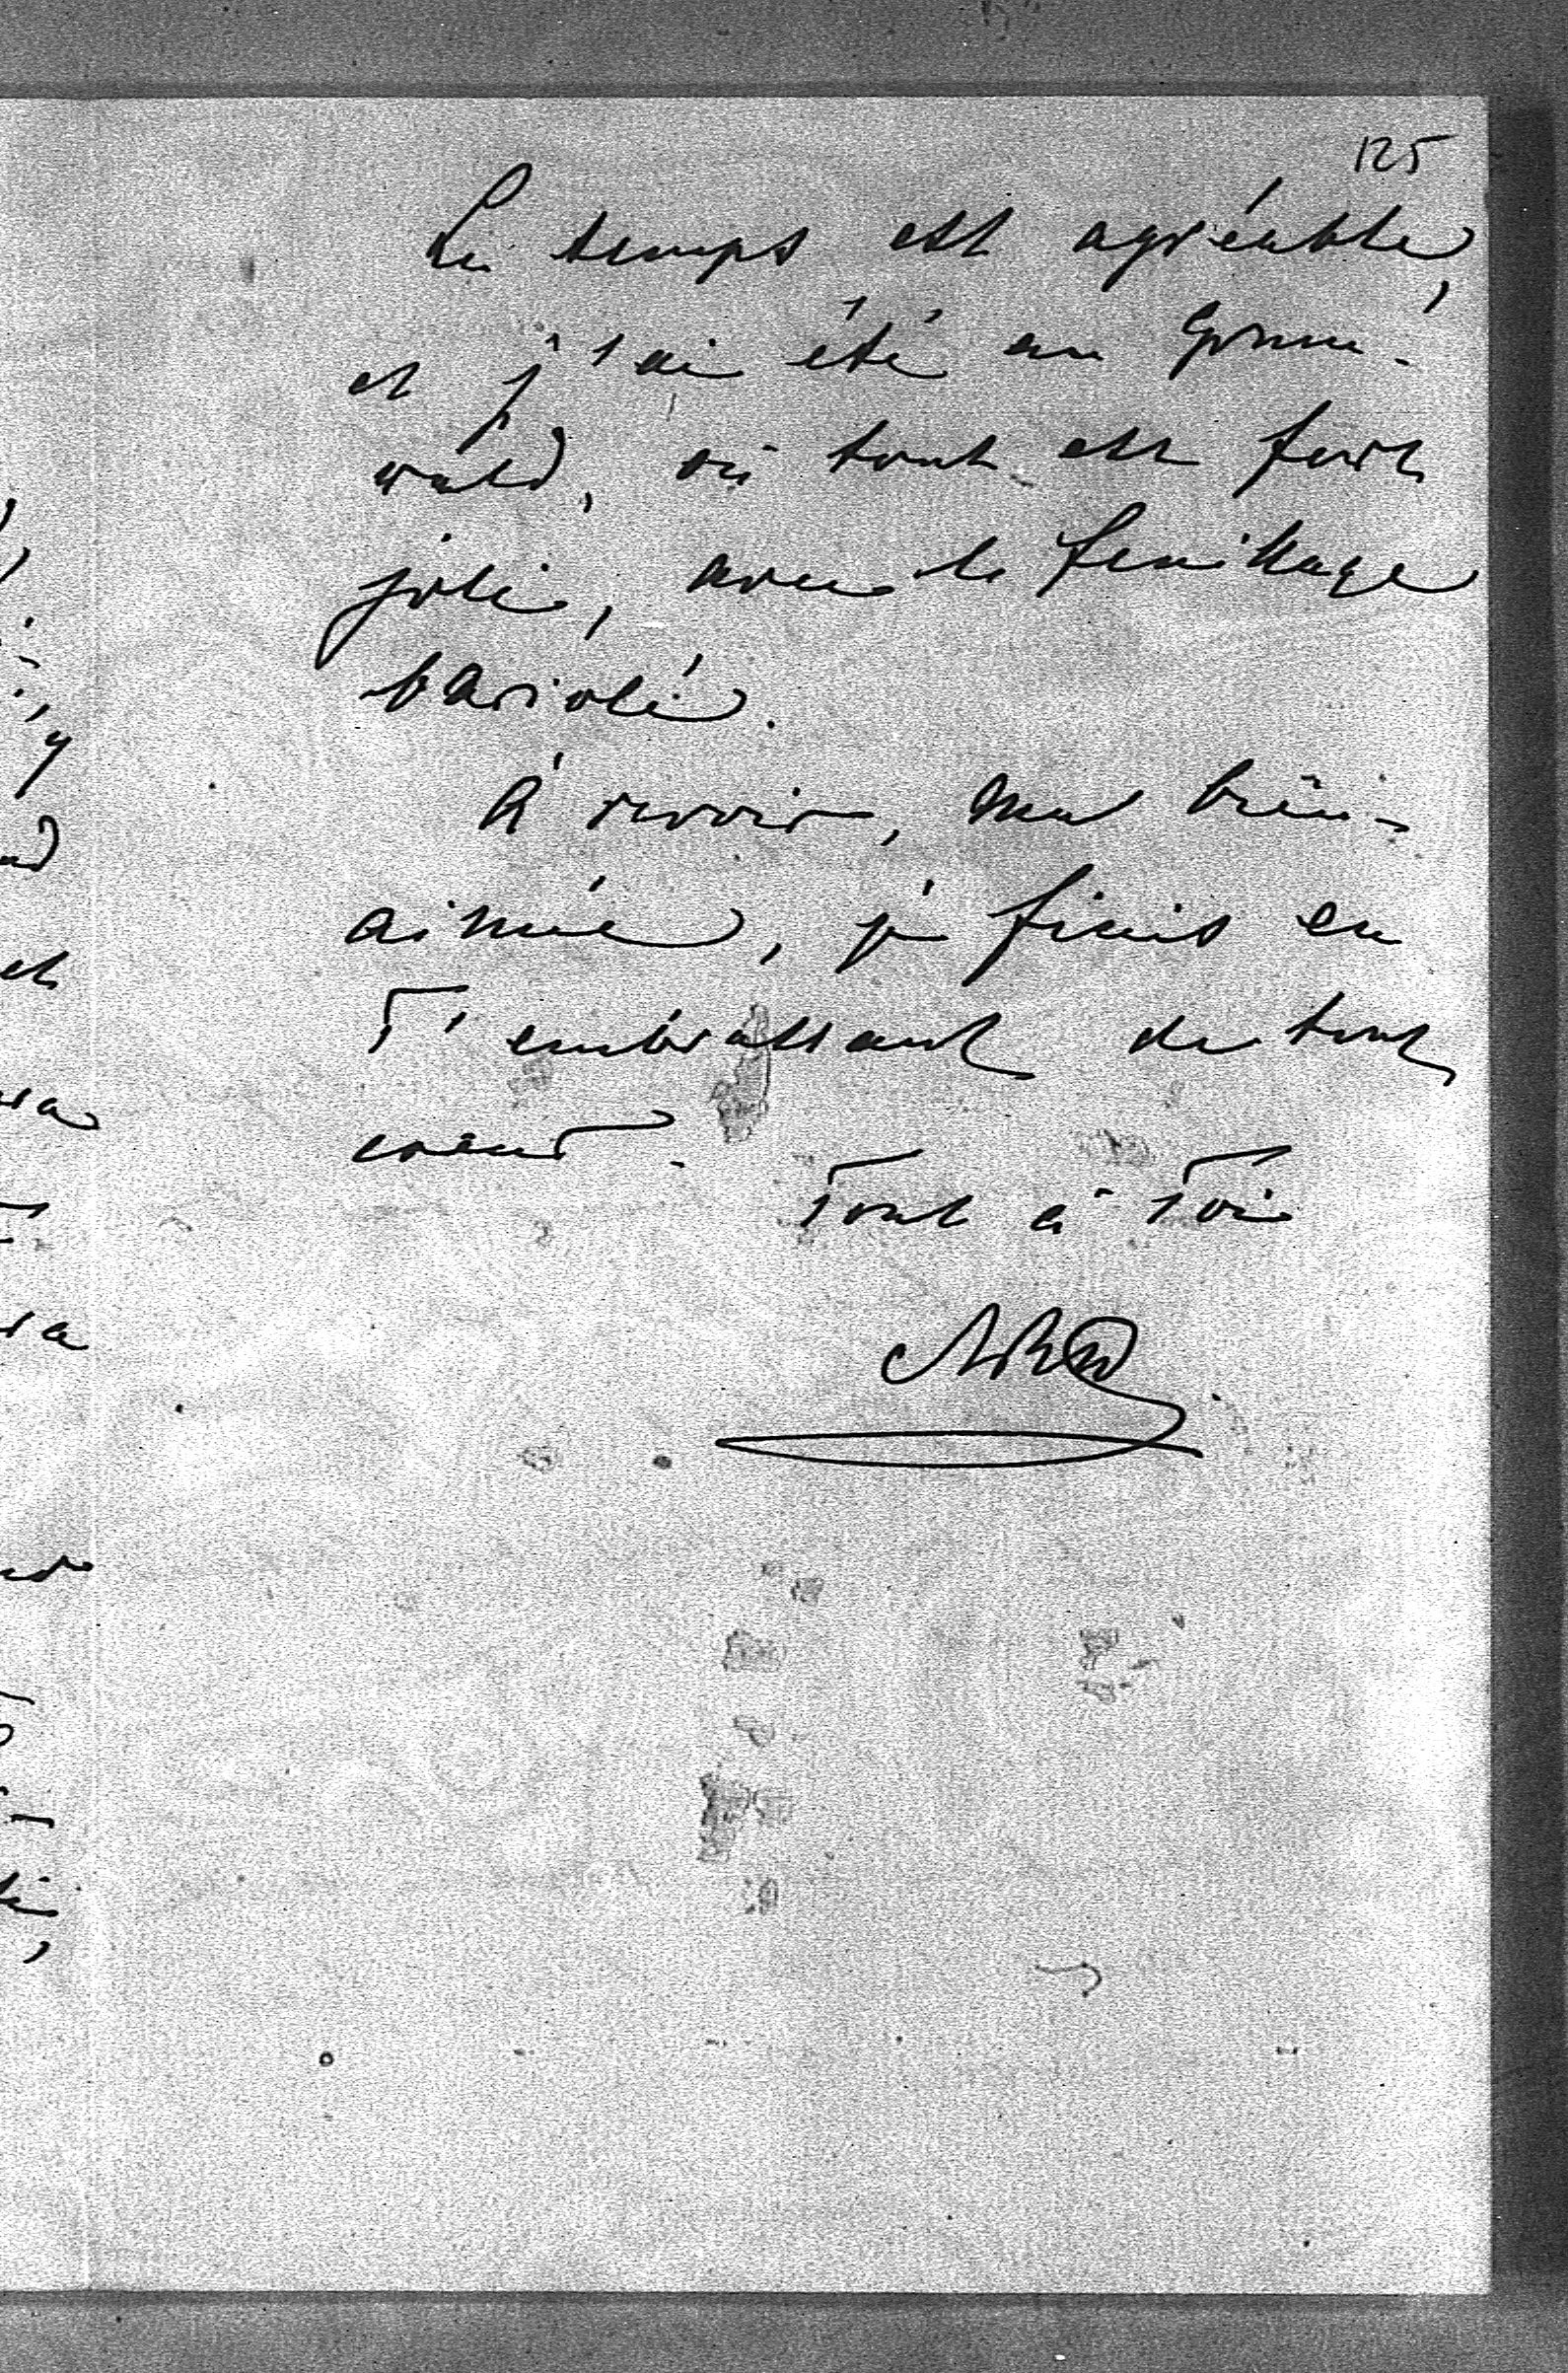 125
Le temps est agréable,
et j'ai été au Grune-
wald, où tout est fort
joli, avec le feuillage
bariolé.
A revoir, ma bien-
aimée, je finis en
T'embrassant de tout
coeur.
Tout à Toi